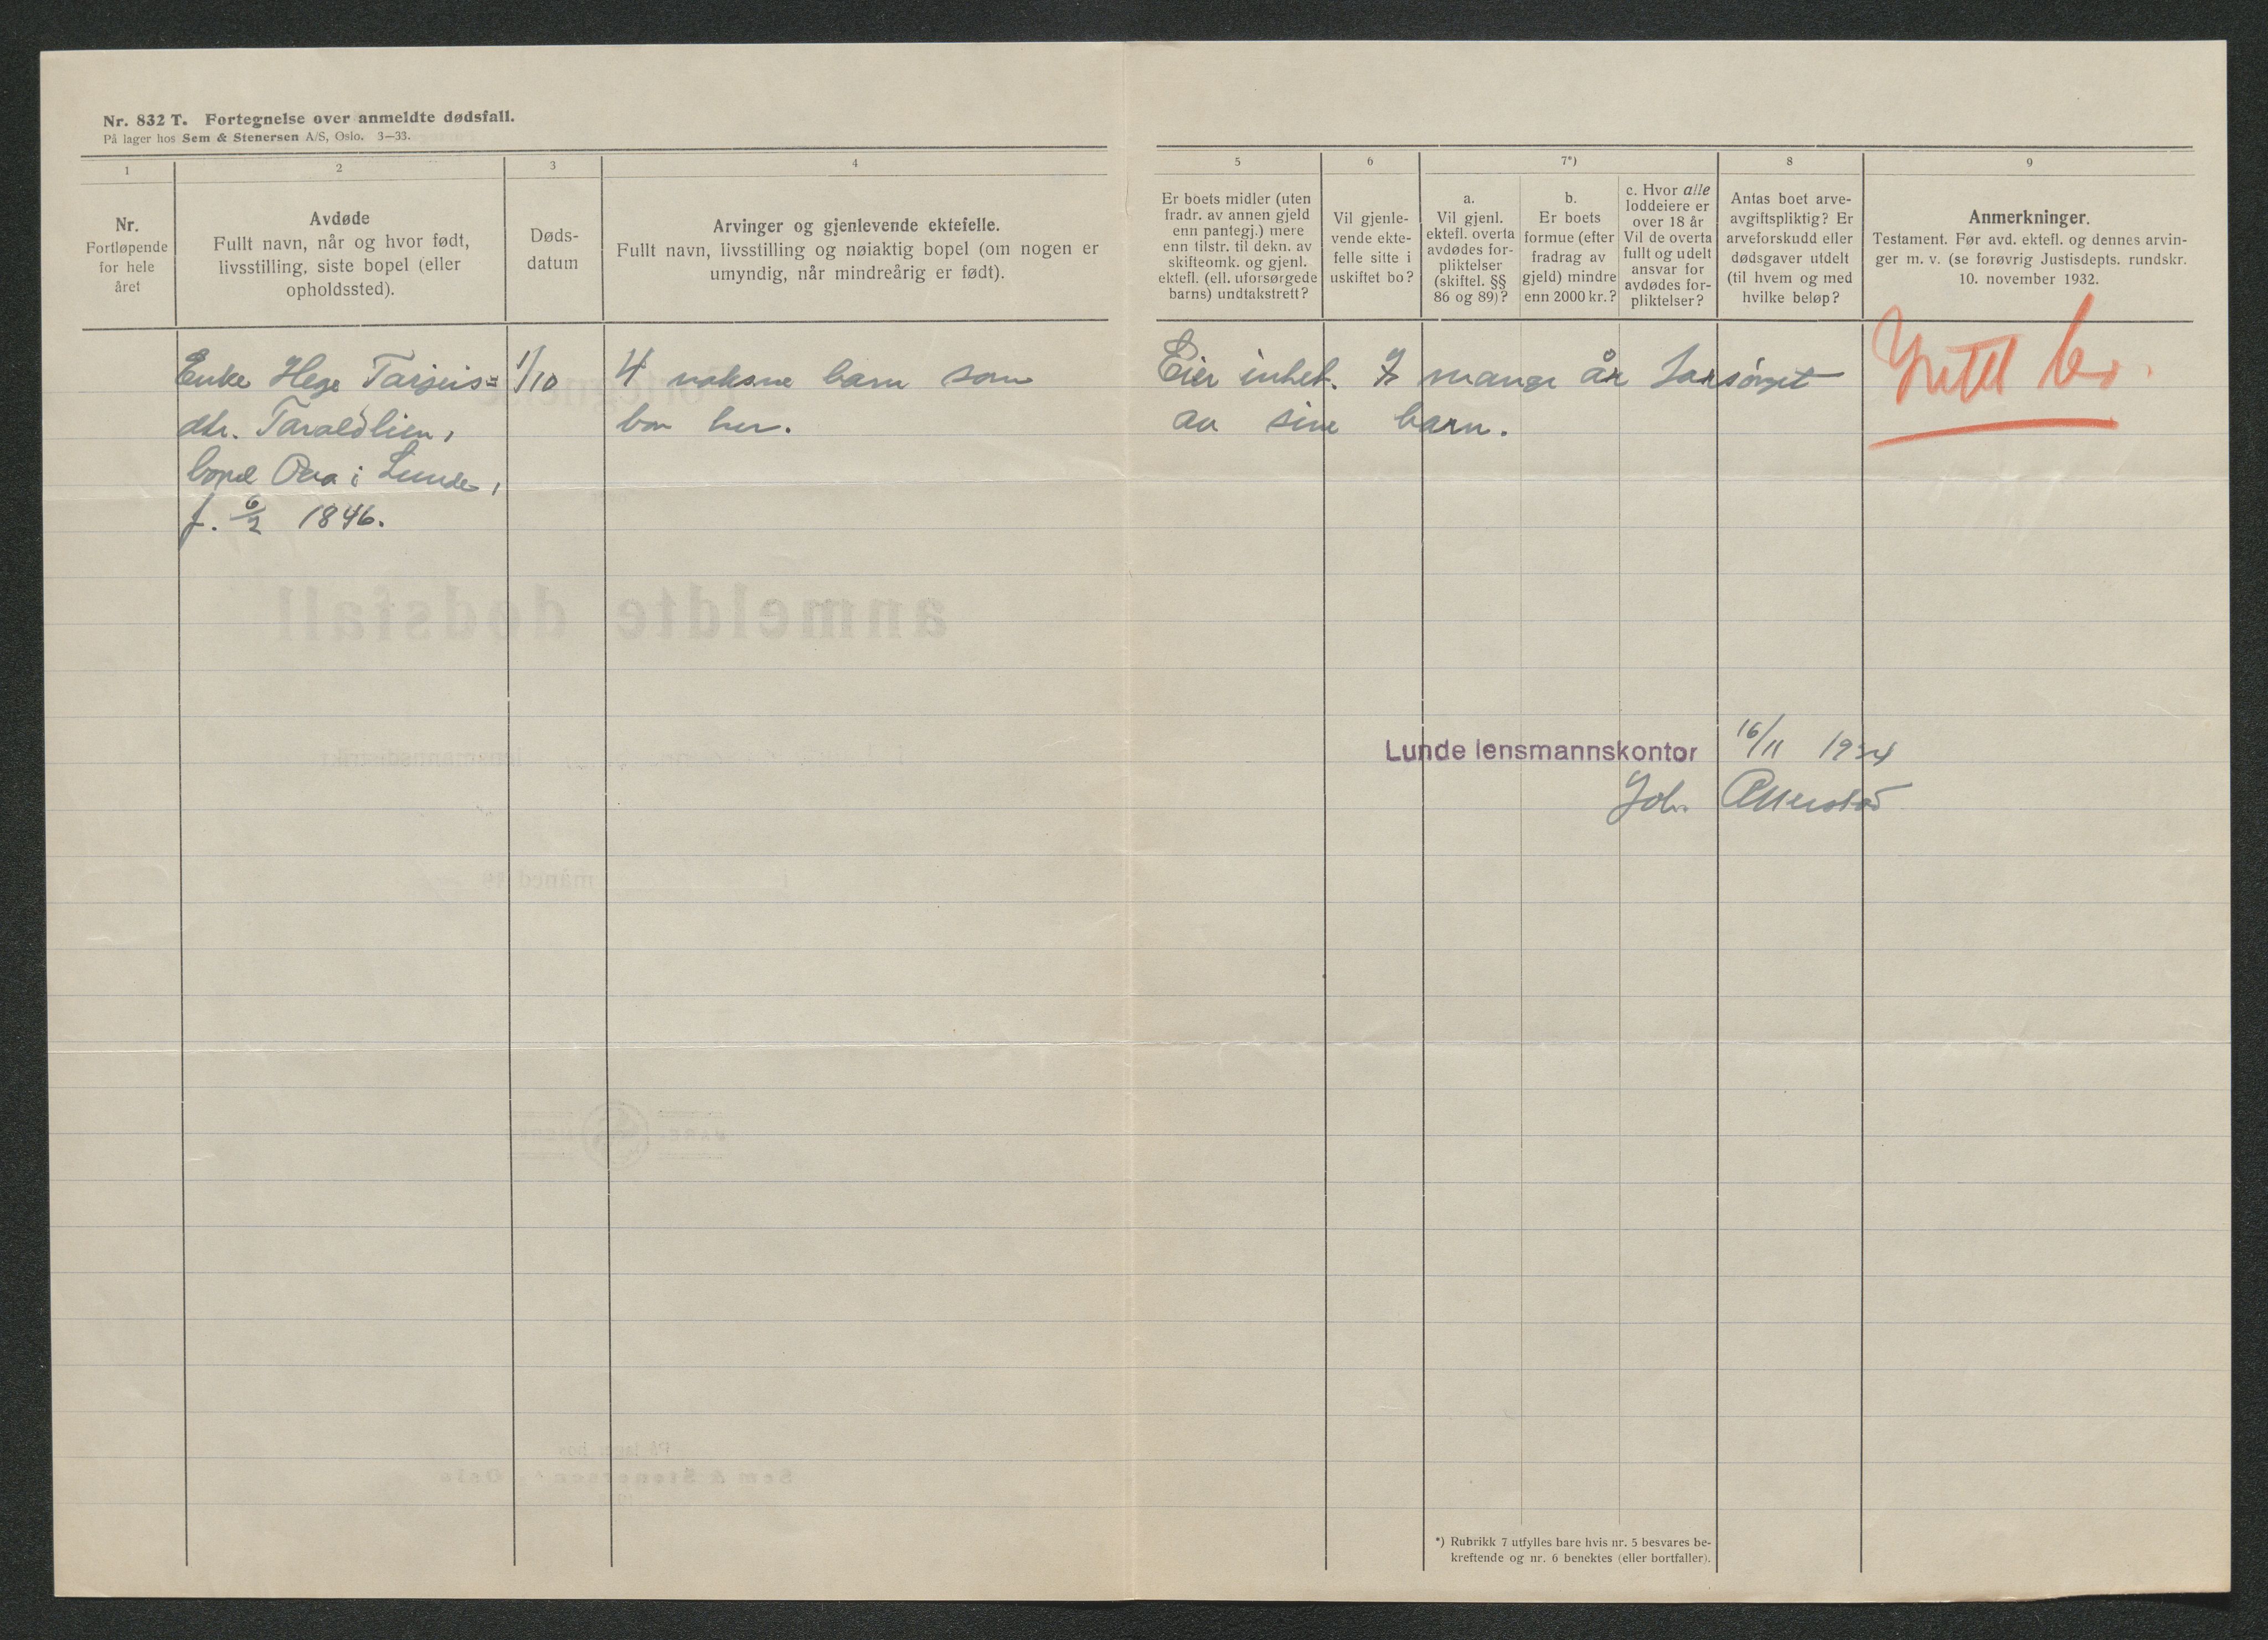 Nr. 832 T. Fortegnelse over anmeldte dødsfall.
På lager hos Sem & Stenersen A/S, Oslo. 3—33.
1
Nr.
Fortløpende
for hele
året
2
Avdøde
Fullt navn, når og hvor født,
livsstilling, siste bopel (eller
opholdssted).
3
Døds-
datum
4
Arvinger og gjenlevende ektefelle.
Fullt navn, livsstilling og nøiaktig bopel (om nogen er
umyndig, når mindreårig er født).
5
Er boets midler (uten
fradr. av annen gjeld
enn pantegj.) mere
enn tilstr. til dekn. av
skifteomk. og gjenl.
ektefl. (ell. uforsørgede
barns) undtakstrett?
6
Vil gjenle-
vende ekte-
felle sitte i
uskiftet bo?
7*)
a.
Vil gjenl.
ektefl. overta
avdødes for-
pliktelser
(skiftel. §§
86 og 89)?
b.
Er boets
formue (efter
fradrag av
gjeld) mindre
enn 2000 kr.?
c. Hvor alle
loddeiere er
over 18 år
Vil de overta
fullt og udelt
ansvar for
avdødes for-
pliktelser?
8
Antas boet arve-
avgiftspliktig? Er
arveforskudd eller
dødsgaver utdelt
(til hvem og med
hvilke beløp?
9
Anmerkninger.
Testament. Før avd. ektefl. og dennes arvin-
ger m. v. (se forøvrig Justisdepts. rundskr.
10. november 1932.
Enke Hege Targeis=
dtr. Taraldlien,
bopel i Lunde,
f. 6/2 1846.
1/10
4 voksne barn som
bor her.
Eier intet. I mange år forsørget
av sine barn.
Intet bo.
Lunde lensmannskontor 16/11 1934
Joh.
*) Rubrikk 7 utfylles bare hvis nr. 5 besvares be-
kreftende og nr. 6 benektes (eller bortfaller).